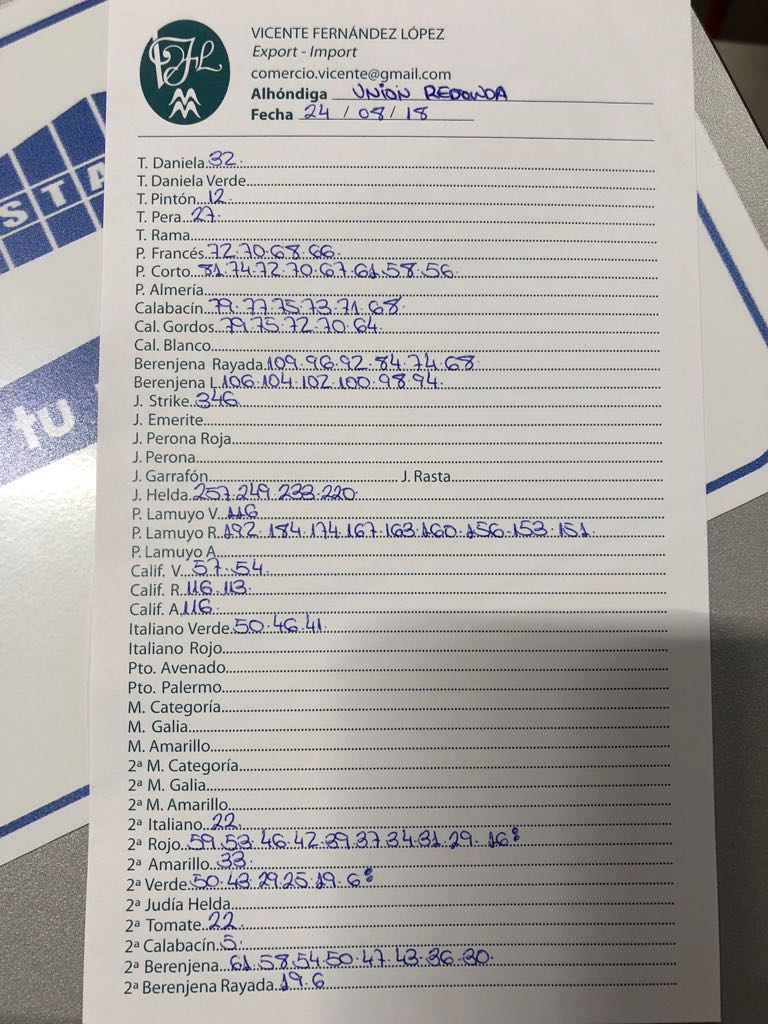 VICENTE FERNÁNDEZ LÓPEZ
Export - Import
comercio.vicente@gmail.com
Alhóndiga UNION REDONDA
Fecha 24 / 08 / 18
T. Daniela 32
T. Daniela Verde
T. Pintón 12
T. Pera 27
T. Rama
P. Francés 72.70.68.66
P. Corto 81.74.72.70.67.61.58.56
P. Almería
Calabacín 79.77.75.73.71.68
Cal. Gordos 79.75.72.70.64
Cal. Blanco
Berenjena Rayada 109.96.92.84.74.68
Berenjena L 106.104.102.100.98.94
J. Strike 346
J. Emerite
J. Perona Roja
J. Perona
J. Garrafón J. Rasta
J. Helda 257.249.233.220
P. Lamuyo V. 116
P. Lamuyo R. 192.184.174.167.163.160.156.153.151
P. Lamuyo A
Calif. V. 57.54
Calif. R. 116.113
Calif. A. 116
Italiano Verde 50.46.41
Italiano Rojo
Pto. Avenado
Pto. Palermo
M. Categoría
M. Galia
M. Amarillo
2ª M. Categoría
2ª M. Galia
2ª M. Amarillo
2ª Italiano 22
2ª Rojo 59.53.46.42.39.37.34.31.29.16
2ª Amarillo 33
2ª Verde 50.43.29.25.19.6
2ª Judía Helda
2ª Tomate 22
2ª Calabacín 5
2ª Berenjena 61.58.54.50.47.43.36.30
2ª Berenjena Rayada 19.6
STA
tu